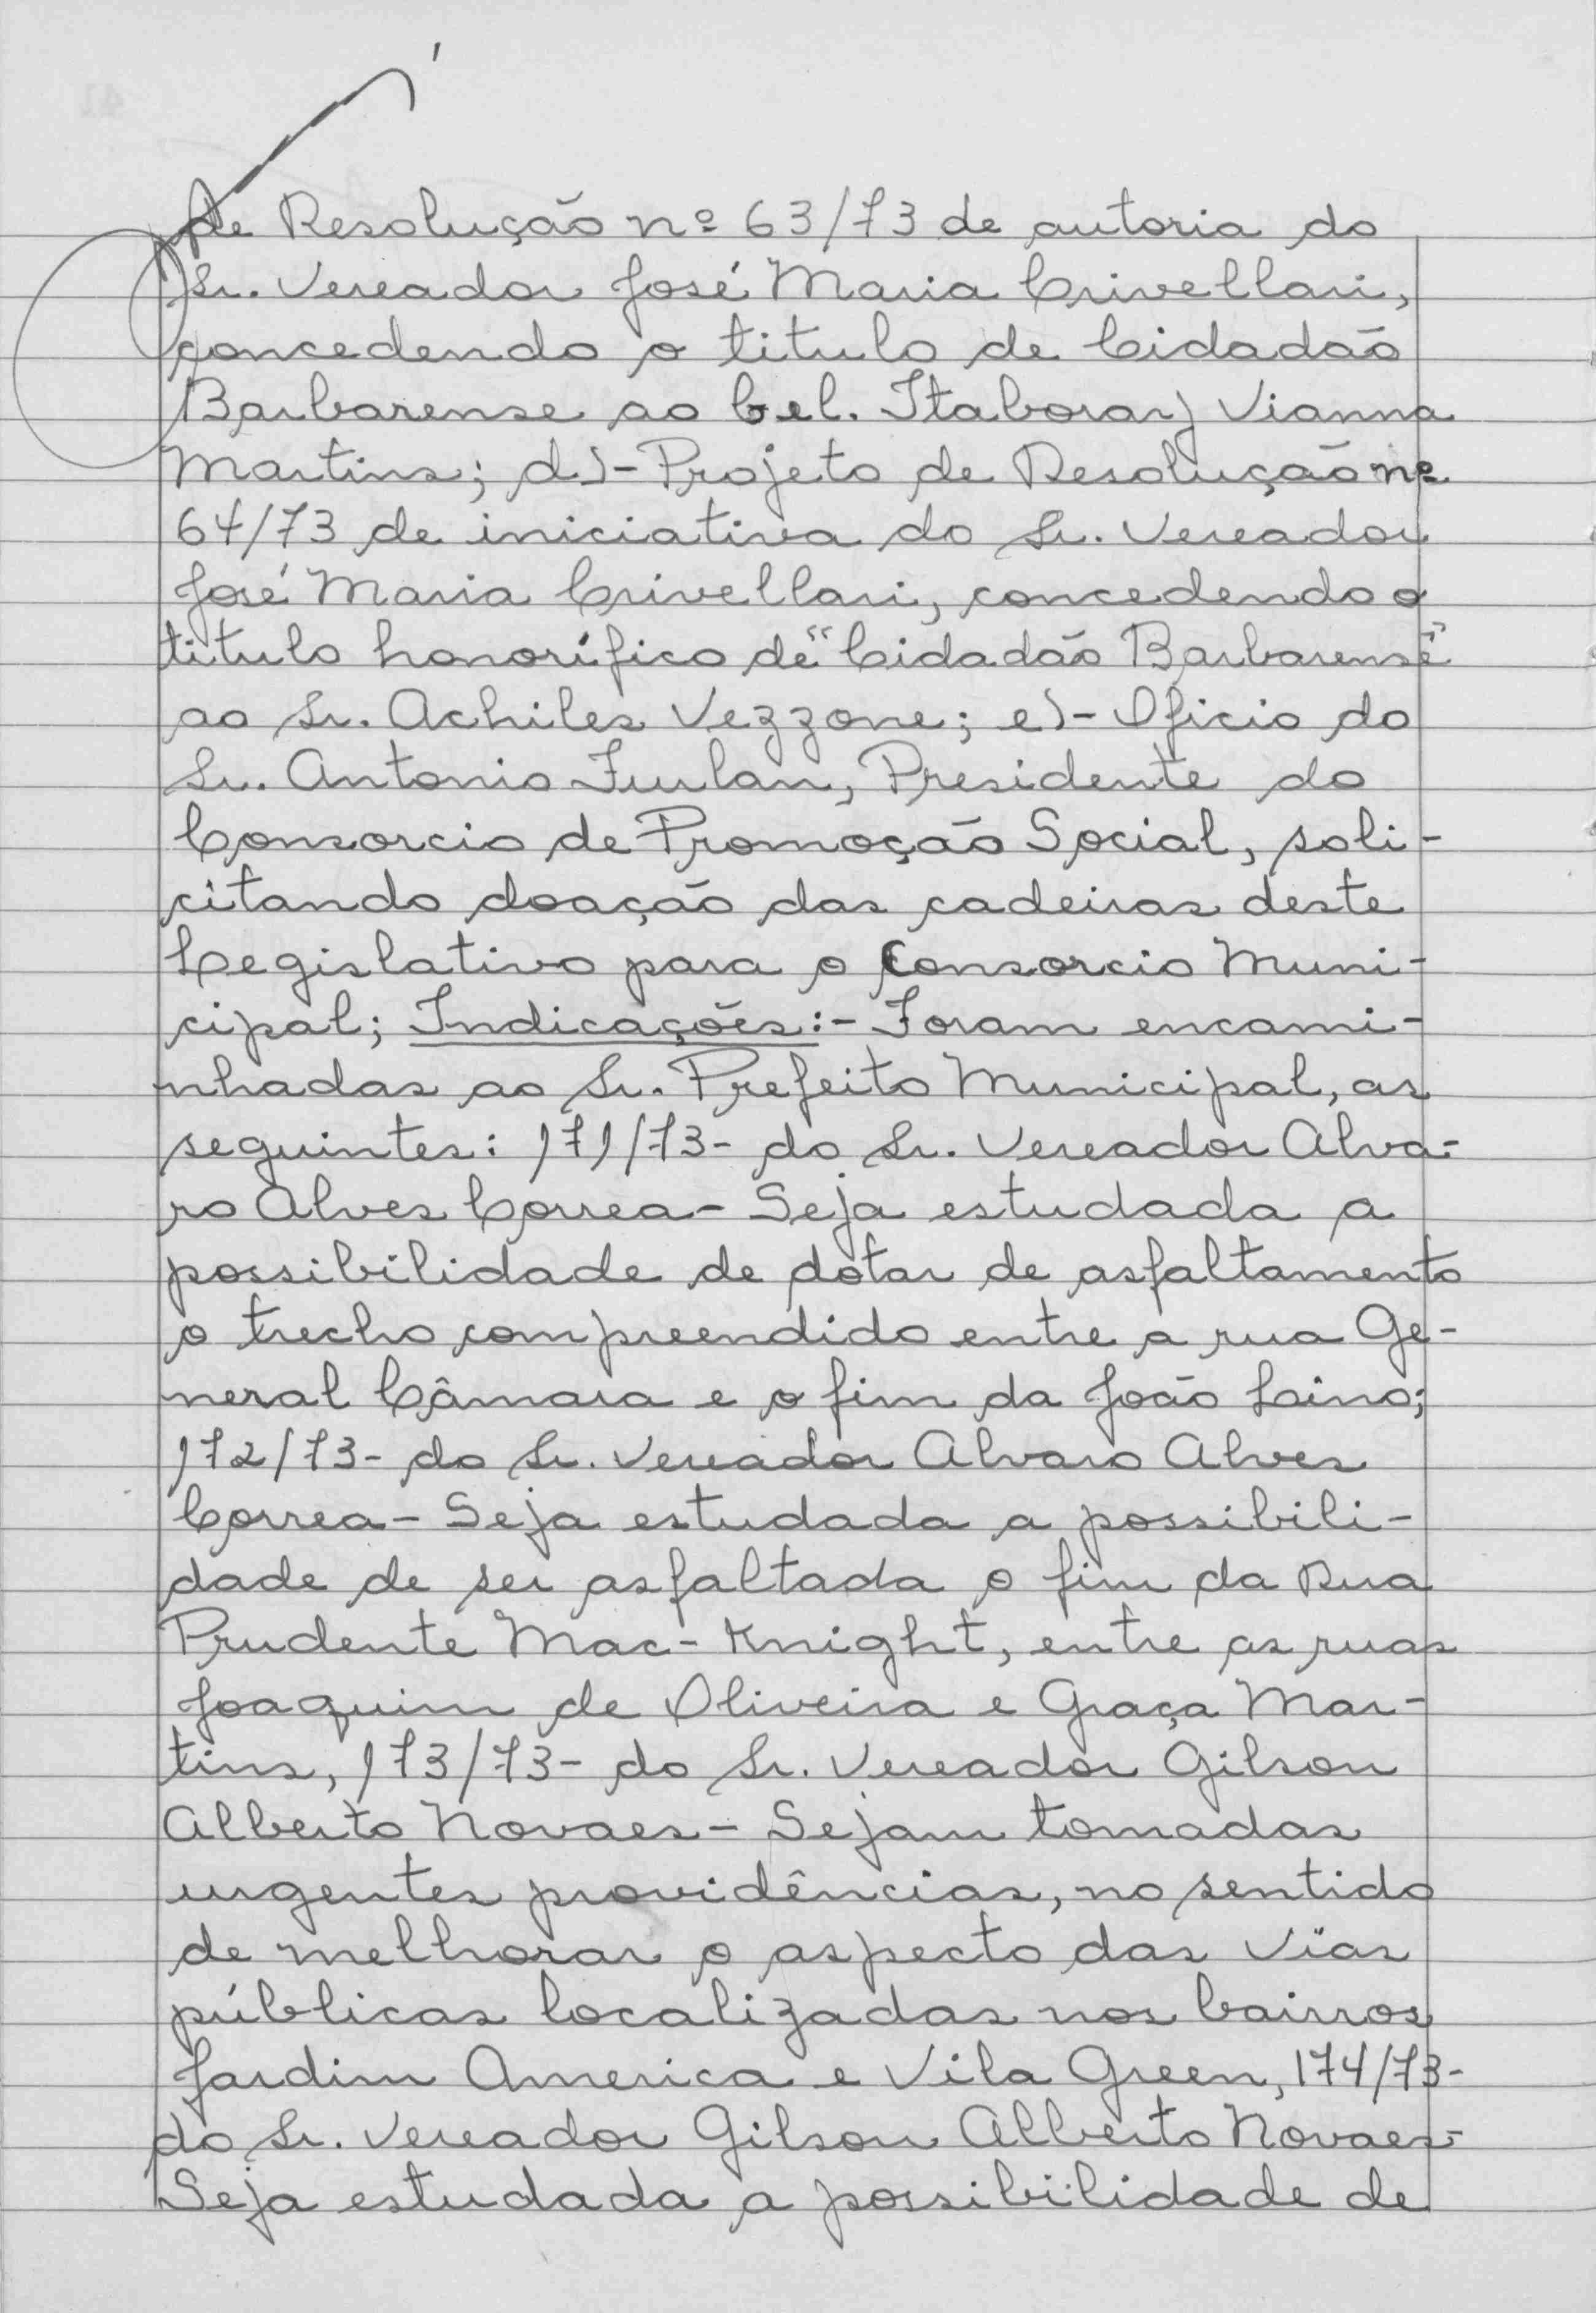 de Resolução nº 63/73 de autoria do
Sr. Vereador José Maria Crivellari,
concedendo o titulo de Cidadão
Barbarense ao Cel. Itaboray Vianna
Martins; d)- Projeto de Resolução nº
64/73 de iniciativa do Sr. Vereador
José Maria Crivellari, concedendo o
titulo honorífico de "Cidadão Barbarense"
ao Sr. Achiles Vezzone; e)- Oficio do
Sr. Antonio Furlan, Presidente do
Consorcio de Promoção Social, soli-
citando doação das cadeiras deste
Legislativo para o Consorcio Muni-
cipal; Indicações:- Foram encami-
nhadas ao Sr. Prefeito Municipal, as
seguintes: 171/73- do Sr. Vereador Alva-
ro Alves Correa- Seja estudada a
possibilidade de dotar de asfaltamento
o trecho compreendido entre a rua Ge-
neral Câmara e o fim da João Lino;
172/73- do Sr. Vereador Alvaro Alves
Correa- Seja estudada a possibili-
dade de ser asfaltada o fim da Rua
Prudente Mac-Knight, entre as ruas
Joaquim de Oliveira e Graça Mar-
tins, 173/73- do Sr. Vereador Gilson
Alberto Novaes- Sejam tomadas
urgentes providências, no sentido
de melhorar o aspecto das vias
públicas localizadas nos bairros
Jardim America e Vila Green, 174/73-
do Sr. Vereador Gilson Alberto Novaes-
Seja estudada a possibilidade de